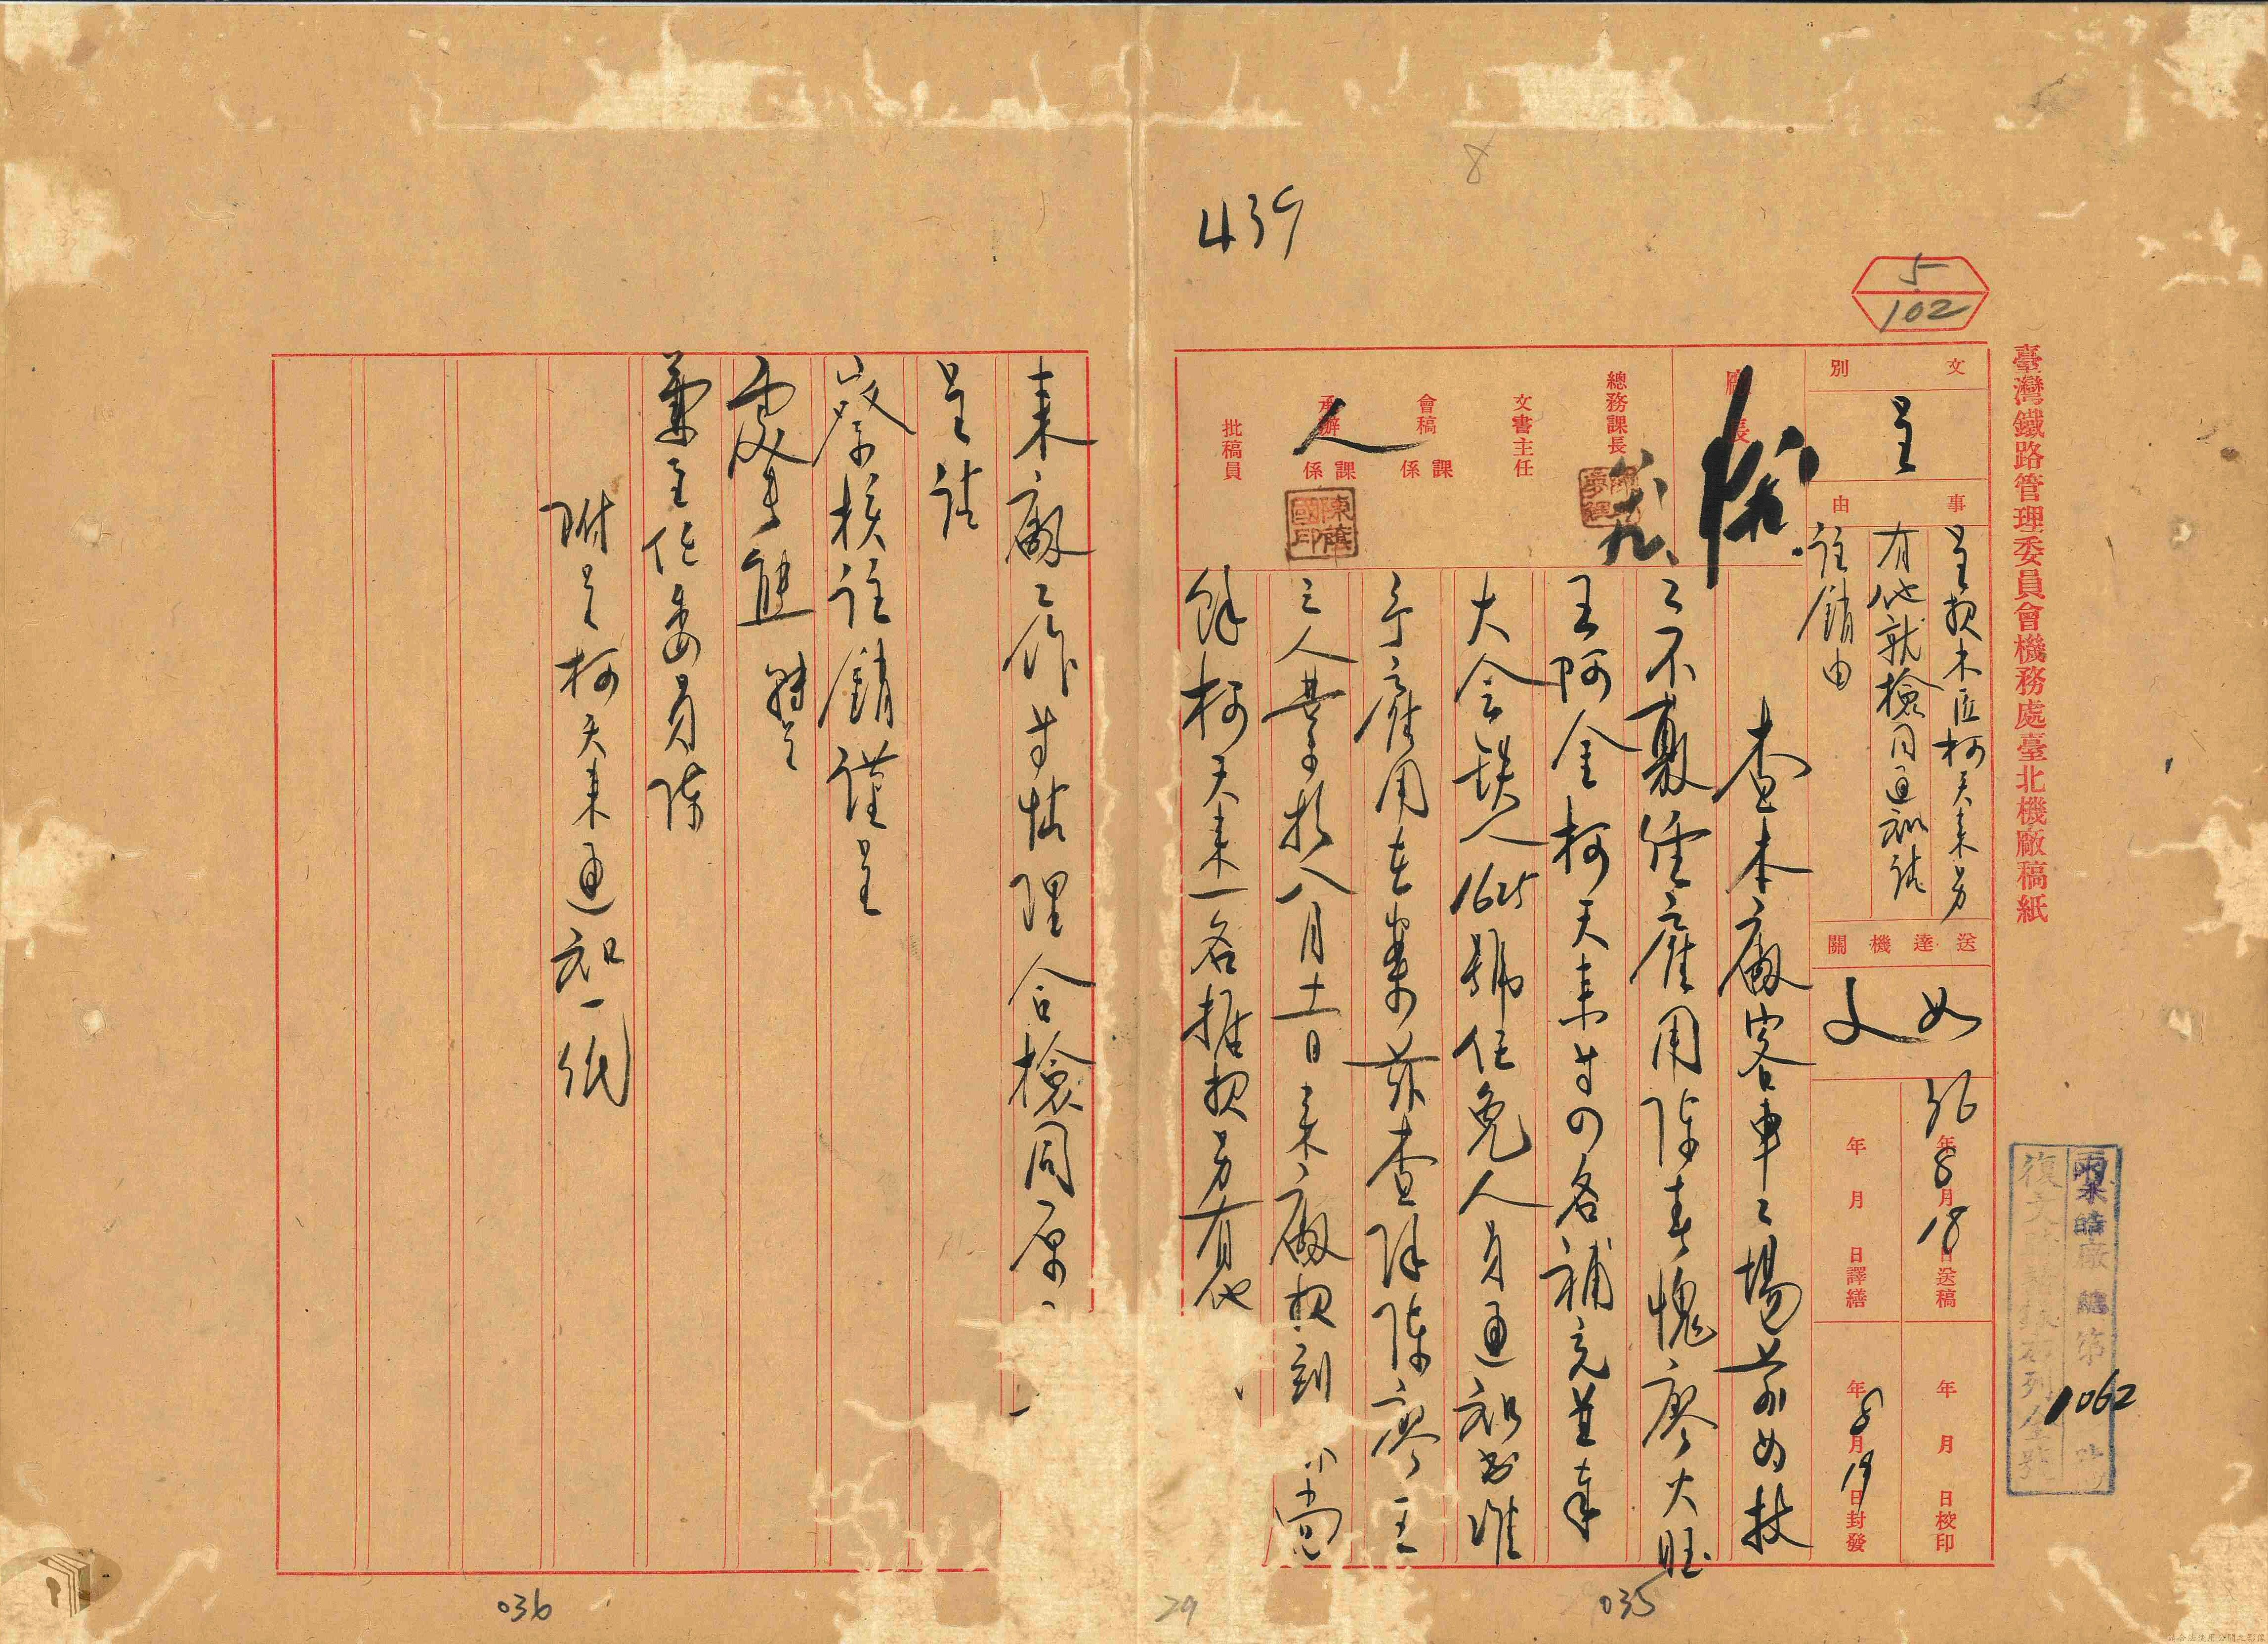 8
439
5
102
臺灣鐵路管理委員會機務處臺北機廠稿紙
文別
呈
事由
呈報木匠柯天來另
有他就檢同通知請
註銷由
送達機關
如
文
36年8月18日送稿
年月日校印
年月日譯繕
年8月19日封發
廠長
總務課長
文書主任
會稿
課係
承辦
課係
批稿員
陳
國印
廠總第1062號
復文時請敍右列全號
查本廠客車工場前因技
工不敷經雇用陳春塊廖火旺
王阿金柯天來等四名補充並奉
大令鐵人1625號任免人員通知書准
予雇用在案茲查陳廖王
三人業予於八月十一日來廠報到
尚
餘柯天來一名據報另有他
來廠工作等情理合檢同原
呈請
察核註銷謹呈
處長 轉呈
兼主任委員陳
附呈柯天來通知一紙
036
29
035